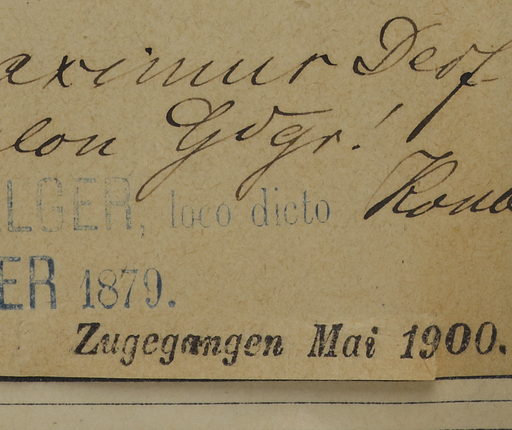 aximur Desf-
lon Gdgr.!
ALGER, loco dicto
ER 1879.
Zugegangen Mai 1900.